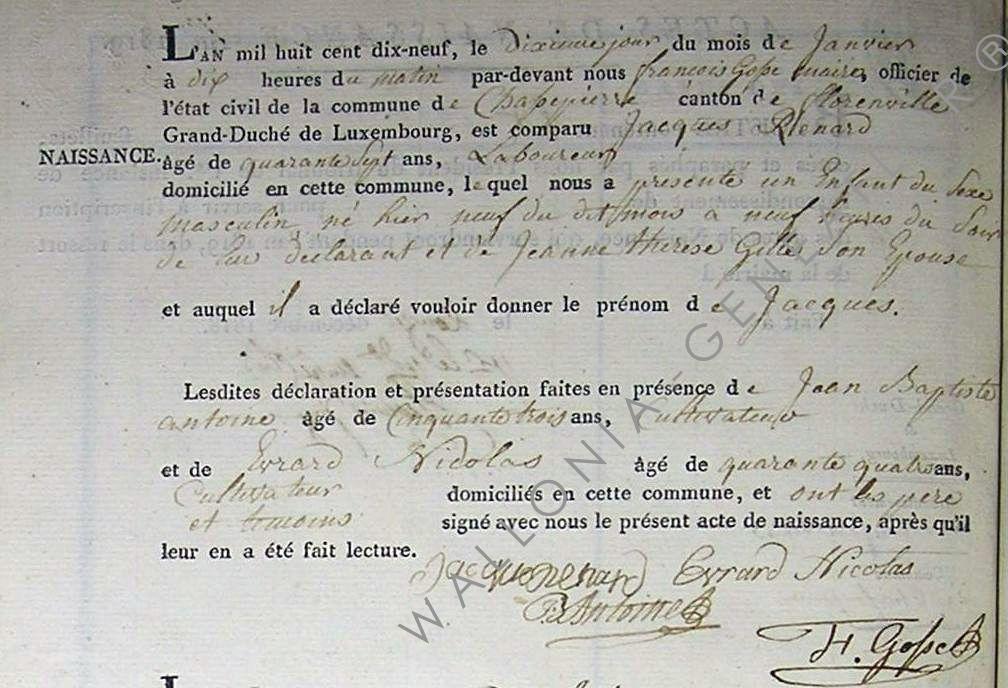 L'AN mil huit cent dix-neuf, le Dixieme jour du mois de Janvier
à dix heures du matin par-devant nous françois Gosse maire, officier de
l'état civil de la commune de Chassepierre canton de florenville
Grand-Duché de Luxembourg, est comparu Jacques Renard
NAISSANCE. âgé de quarante Sept ans, Laboureur
domicilié en cette commune, lequel nous a presenté un Enfant du Sexe
masculin, né hier neuf du dit mois a neuf heures du Soir
de lui déclarant et de Jeanne therese Gille Son Epouse
et auquel il a déclaré vouloir donner le prénom de Jacques.
Lesdites déclaration et présentation faites en présence de Jean Baptiste
antoine âgé de Cinquante trois ans, Cultivateur
et de Evrard Nicolas âgé de quarante quatre ans,
Cultivateur domiciliés en cette commune, et ont les pere
et temoins signé avec nous le présent acte de naissance, après qu'il
leur en a été fait lecture.
Jacque renard Evrard Nicolas
Antoine
H. Gosse
WALLONIA GENE
®